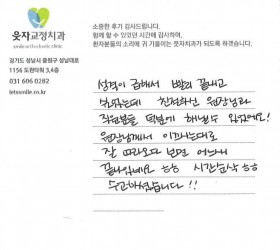 웃자교정치과
smile orthodontic clinic
경기도 성남시 중원구 성남대로
1156 도원타워 3,4층
031 606 0282
letssmile.co.kr
소중한 후기 감사드립니다.
함께 할 수 있었던 시간에 감사하며,
환자분들의 소리에 귀 기울이는 웃자치과가 되도록 하겠습니다.
성격이 급해서 빨리 끝내고
싶었는데 친절하신 원장님과
직원분들 덕분에 해낼수 있었어요!
원장님께서 이끄는대로
잘 따라오다 보면 어느새
끝나있네요 ㅎㅎ 시간순삭 ㅎㅎ
수고하셨습니다!!